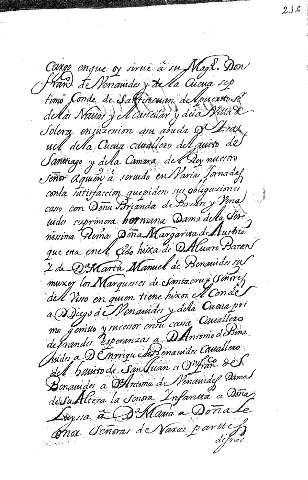 cargo en que oy sirve à su Magd. Don
fran.co de Benavides y de la Cueva sep
timo Conde de Santistevan de
de las Navas y el Castellar y de la
Solera en sucesion a su abuelo Dn.
de la Cueva cavallero del avito de
Santiago y de la Camara del Rey nuestro
señor a quien à servido en varias jornadas
con la satisfaccion que piden sus obligaciones
caso con Doña Brianda de Bazan y Vena
vides su prima hermana Dama de la Ser
nissima Reina Doña Margarita de Austria
que era en el hixa de D Alvaro Bazan
y de Da. Maria Manuel de Benavides su
muxer los Marqueses de Santa cruz señores
del Viso en quien tiene hixos al Conde
a D Diego de Benavides y de la Cueva pri
mo genito y sucesor en su casa Cavallero
de grandes esperanzas a D Antonio de Bena
bides a D Enrrique de Benavides Cavallero
del havito de San Juan a Dn fran.co de
Benavides a Da Antonia de Benavides Dama
de su Alteza la señora Infanta a Doña
Luyssa à Da Maria a Doña Le
onor señoras de Varios